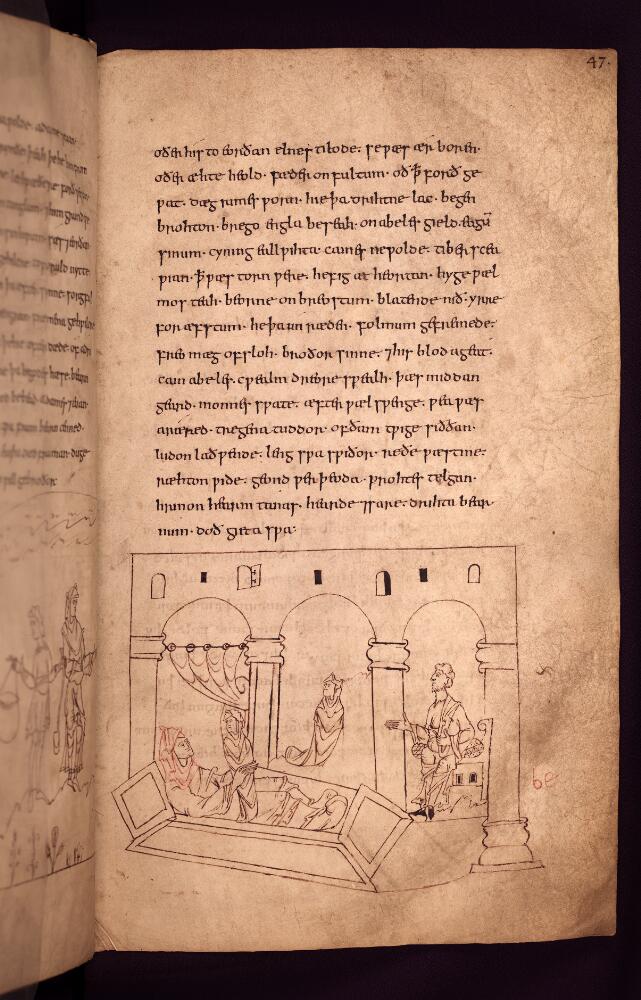 47.
oðer his to eorðan elnes tilode. se wæs ær boren.
oðer æhte heold. fæder on fultum. oð ꝥ forð ge
wat. dæg rimes worn. hie þa drihtne lac. begen
brohton. brego engla beseah. on abeles gield. eagū
sinum. cyning eall wihta. caines ne wolde. tiber scea
wian. ꝥ wæs torn were. hefig æt heortan. hyge wæl
mos teah. beorne on breostum. blatende nið. yrre
for æfstum. he þa unræden. folmum gefremede.
freo mæg ofsloh. broðor sinne. ⁊ his blod ageat.
cain abeles. cwealm dreore swealh. þæs middan
geard. monnes swate. æfter wæl swenge. wea wæs
aræred. tregena tuddor. of ðam twige siððan.
ludon lað wende. leng swa swiðor. reðe wæstme.
ræhton wide. geond wer þeoda. wrohtes telgan.
hrinon hearm tanas. hearde ⁊ sare. drihta bear
num. doð gieta swa.
be